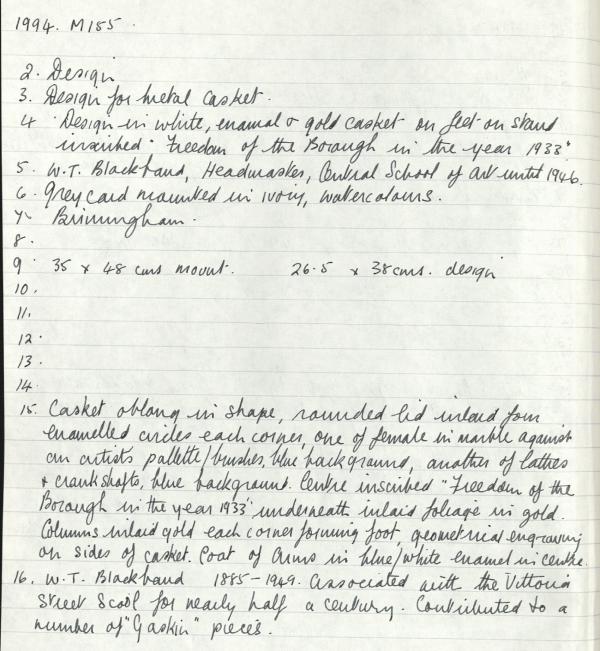 1994. M185.
2. Design
3. Design for metal casket.
4 Design in white, enamal & gold casket on feet on stand
inscribed "Freedom of the Borough in the year 1933".
5. W.T. Blackband, Headmaster, Central School of art until 1946.
6. Grey card mounted in ivory, watercolours.
7. Birmingham.
8.
9 35 x 48 cms mount. 26.5 x 38cms. design
10.
11.
12.
13.
14.
15. Casket oblong in shape, rounded lid inlaid four
enamelled circles each corner, one of female in marble against
an artists pallette/brushes, blue background, another of lathes
& crankshafts, blue background. Centre inscribed "Freedom of the
Borough in the year 1933" underneath inlaid foliage in gold.
Columns inlaid gold each corner forming foot, geometrical engraving
on sides of casket. Coat of Arms in blue/white enamel in centre.
16. W.T. Blackband 1885-1949. Associated with the Vittoria
Street Scool for nearly half a century. Contributed to a
number of "Gaskin" pieces.